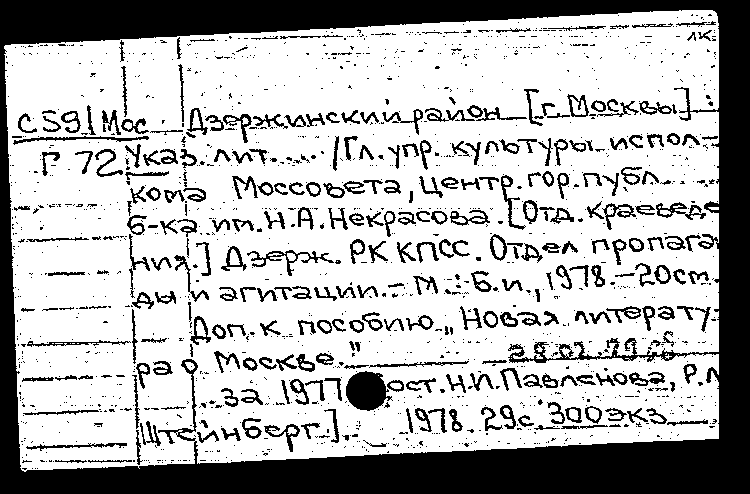 лк.
С591Мос Дзержинский район [г. Москвы] :
Г 72 Указ. лит.... /Гл. упр. культуры испол-
кома Моссовета, центр. гор. публ.
б-ка им. Н.А. Некрасова. [Отд. краеведе
ния.] Дзерж. РК КПСС. Отдел пропаган
ды и агитации. – М.: Б.и., 1978. – 20см.
Доп. к пособию „Новая литерату-
ра о Москве."
..за 1977 ост. Н.И. Павленова, Р.Л
Штейнберг.]. 1978. 29с. 300экз